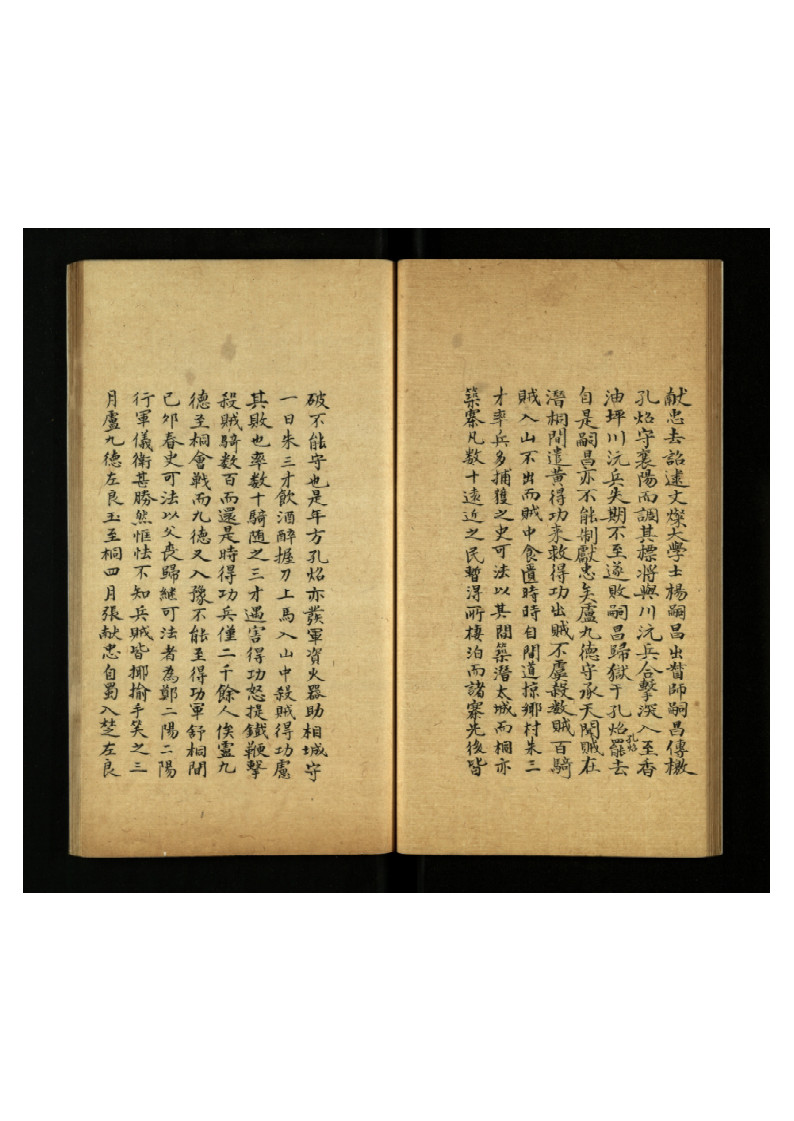 献忠去詔逮文燦大學士楊嗣昌出督師嗣昌傳檄
孔炤守襄陽而調其標將與川沅兵合擊深入至香
油坪川沅兵失期不至遂敗嗣昌歸獄于孔炤孔炤罷去
自是嗣昌亦不能制獻忠矣盧九德守承天聞賊在
潛桐間遣黄得功来救得功出賊不虞殺数賊百騎
賊入山不出而賊中食匱時時自間道掠鄉村朱三
才率兵多捕獲之史可法以其間築潛太城而桐亦
築寨凡数十遠近之民暫得所棲泊而諸寨先後皆
破不能守也是年方孔炤亦發軍資火器助桐城守
一日朱三才飲酒醉握刀上馬入山中殺賊得功慮
其敗也率数十騎随之三才遇害得功怒提鐵鞭擊
殺賊騎数百而還是時得功兵僅二千餘人俟盧九
德至桐會戰而九德又入豫不能至得功軍舒桐間
已夘春史可法以父丧歸継可法者為鄭二陽二陽
行軍儀衛甚勝然恇怯不知兵賊皆揶揄手笑之三
月盧九德左良玉至桐四月張献忠自蜀入楚左良